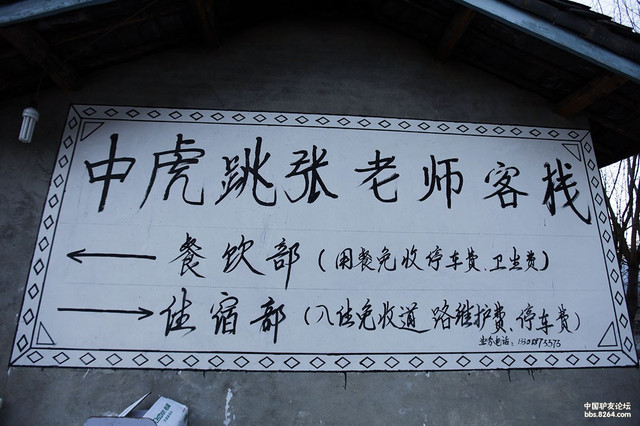 中虎跳张老师客栈
餐饮部(用餐免收停车费、卫生费)
住宿部(入住免收道路维护费、停车费)
业务电话:
中国驴友论坛
bbs.8264.com